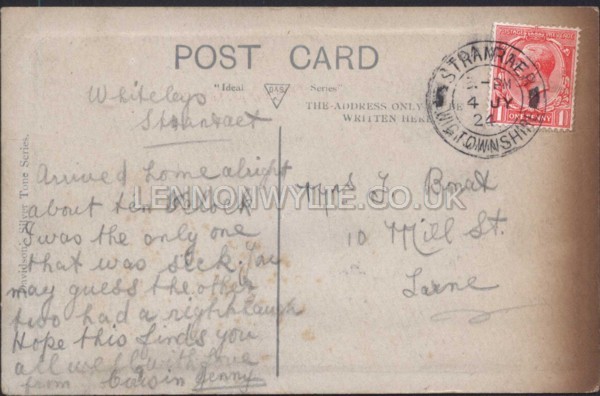 POST CARD
"Ideal DAG Series"
THE ADDRESS ONLY
WRITTEN HERE
STRANRAER
PM
4 JY
24
WIGTOWNSHIRE
1 ONE PENNY 1
Whiteleys
Stranraer
Arrived home alright
about ten o'clock
I was the only one
that was sick. You
may guess the other
two had a right laugh
Hope this finds you
all well with love
from Cousin Jenny
Mrs J
10 Mill St.
Larne
Davidsons' Silver Tone Series.
LENNONWYLIE.CO.UK